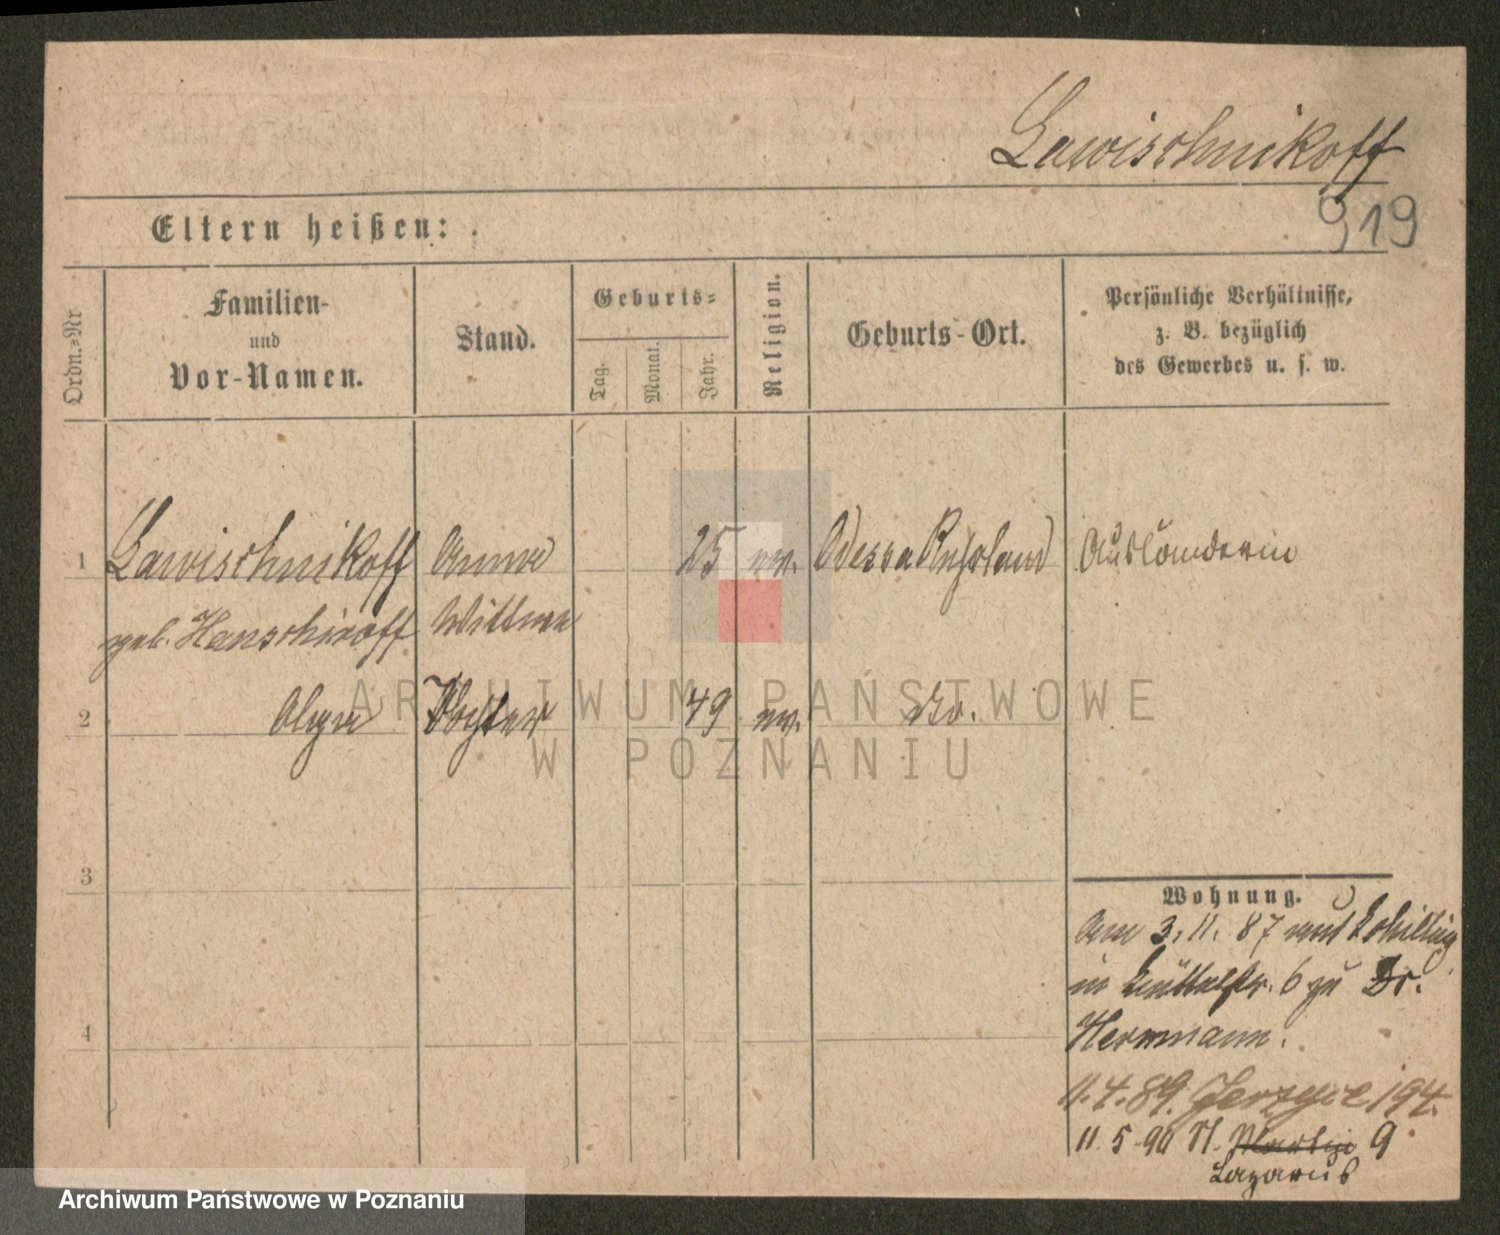 Lawischnikoff
919
Eltern heißen:
Ordn.=Nr.
Familien-
und
Vor-Namen.
Stand.
Geburts=
Tag.
Monat.
Jahr.
Religion.
Geburts-Ort.
Persönliche Verhältnisse,
z. B. bezüglich
des Gewerbes u. s. w.
1 Lawischnikoff Anna 25 ev. Odessa Rußland Ausländerin
geb. Hanschiroff Wittwe
2 Olga Tochter 49 ev. do.
3
4
Wohnung.
Am 3. 11. 87 mit Schilling
in 6 zu Dr.
Herrmann.
11. 4. 89. Jerzyce 194.
11. 5. 90 St. Martin 9
Lazarus
ARCHIWUM PAŃSTWOWE
W POZNANIU
Archiwum Państwowe w Poznaniu